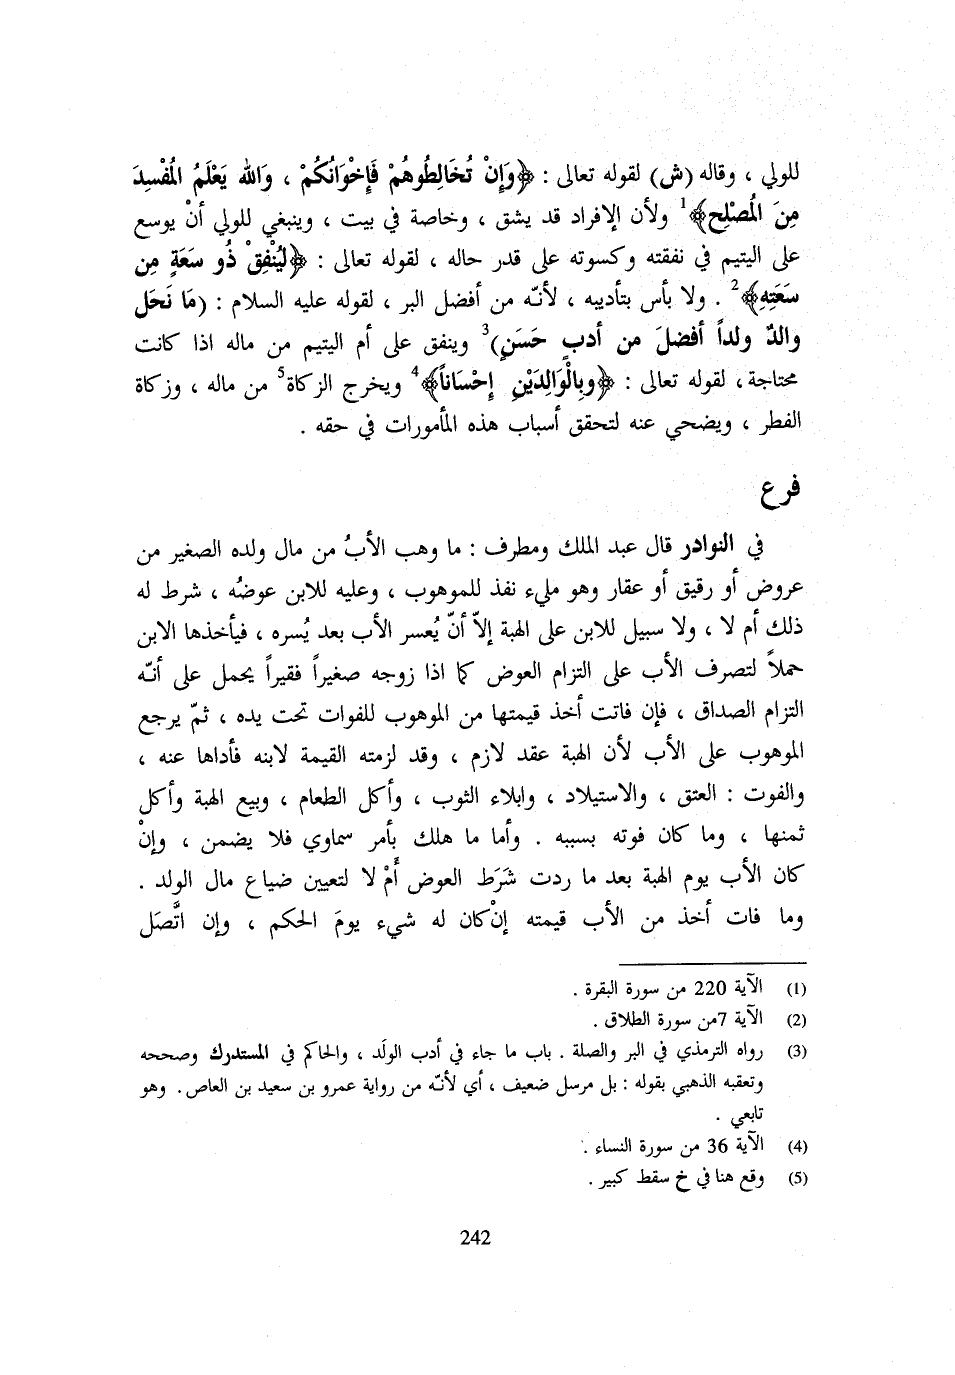 للولي ، وقاله (ش) لقوله تعالى : ﴿وَإِنْ تُخَالِطُوهُمْ فَإِخْوَانُكُمْ ، وَالله يَعْلَمُ الْمُفْسِدَ
مِنَ الْمُصْلِحِ﴾1 ولأن الإفراد قد يشق ، وخاصة في بيت ، وينبغي للولي أنْ يوسع
على اليتيم في نفقته وكسوته على قدر حاله ، لقوله تعالى : ﴿لِيُنْفِقْ ذُو سَعَةٍ مِن
سَعَتِهِ﴾2 . ولا بأس بتأديبه ، لأنّه من أفضل البر ، لقوله عليه السلام : (مَا نَحَل
والدٌ ولداً أفضلَ من أدبٍ حَسَنٍ)3 وينفق على أم اليتيم من ماله اذا كانت
محتاجة ، لقوله تعالى : ﴿وبِالْوَالِدَيْنِ إِحْسَاناً﴾4 ويخرج الزكاة5 من ماله ، وزكاة
الفطر ، ويضحي عنه لتحقق أسباب هذه المأمورات في حقه .
فرع
في النوادر قال عبد الملك ومطرف : ما وهب الأبُ من مال ولده الصغير من
عروض أو رقيق أو عقار وهو مليء نفذ للموهوب ، وعليه للابن عوضُه ، شرط له
ذلك أم لا ، ولا سبيل للابن على الهبة إلاّ أنّ يُعسر الأب بعد يُسره ، فيأخذها الابن
حملاً لتصرف الأب على التزام العوض كما اذا زوجه صغيراً فقيراً يحمل على أنّه
التزام الصداق ، فإن فاتت أخذ قيمتها من الموهوب للفوات تحت يده ، ثمّ يرجع
الموهوب على الأب لأن الهبة عقد لازم ، وقد لزمته القيمة لابنه فأداها عنه ،
والفوت : العتق ، والاستيلاد ، وابلاء الثوب ، وأكل الطعام ، وبيع الهبة وأكل
ثمنها ، وما كان فوته بسببه . وأما ما هلك بأمر سماوي فلا يضمن ، وإنْ
كان الأب يوم الهبة بعد ما ردت شَرَط العوض أَمْ لا لتعيين ضياع مال الولد .
وما فات أخذ من الأب قيمته إنْ كان له شيء يومَ الحكم ، وإن اتَّصَل
(1) الآية 220 من سورة البقرة .
(2) الآية 7من سورة الطلاق .
(3) رواه الترمذي في البر والصلة . باب ما جاء في أدب الولَد ، والحاكم في المستدرك وصححه
وتعقبه الذهبي بقوله : بل مرسل ضعيف ، أي لأنّه من رواية عمرو بن سعيد بن العاص . وهو
تابعي .
(4) الآية 36 من سورة النساء .
(5) وقع هنا في خ سقط كبير .
242